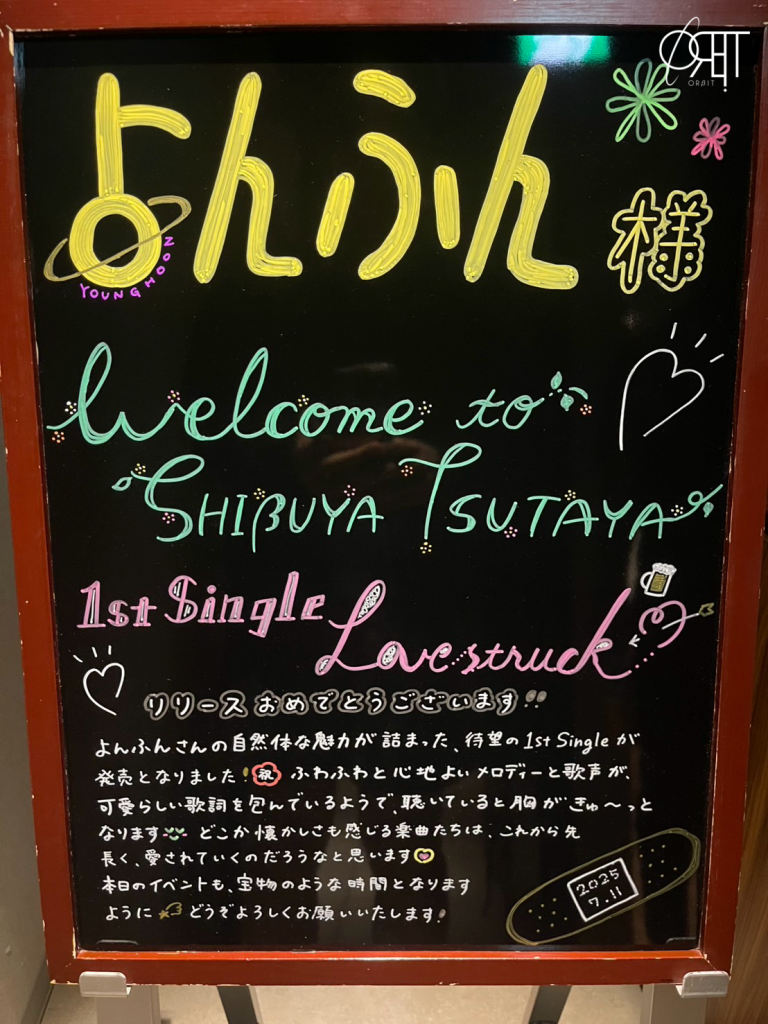 ORBIT
ORBIT
よんふん様
YOUNGHOON
Welcome to
SHIBUYA TSUTAYA
1st Single
Lovestruck
リリースおめでとうございます!!
よんふんさんの自然体な魅力が詰まった、待望の1st Singleが
発売となりました!祝 ふわふわと心地よいメロディーと歌声が、
可愛らしい歌詞を包んでいるようで、聴いていると胸がきゅ〜っと
なります どこか懐かしさも感じる楽曲たちは、これから先
長く、愛されていくのだろうなと思います
本日のイベントも、宝物のような時間となります
ように どうぞよろしくお願いいたします!
2025
7.11